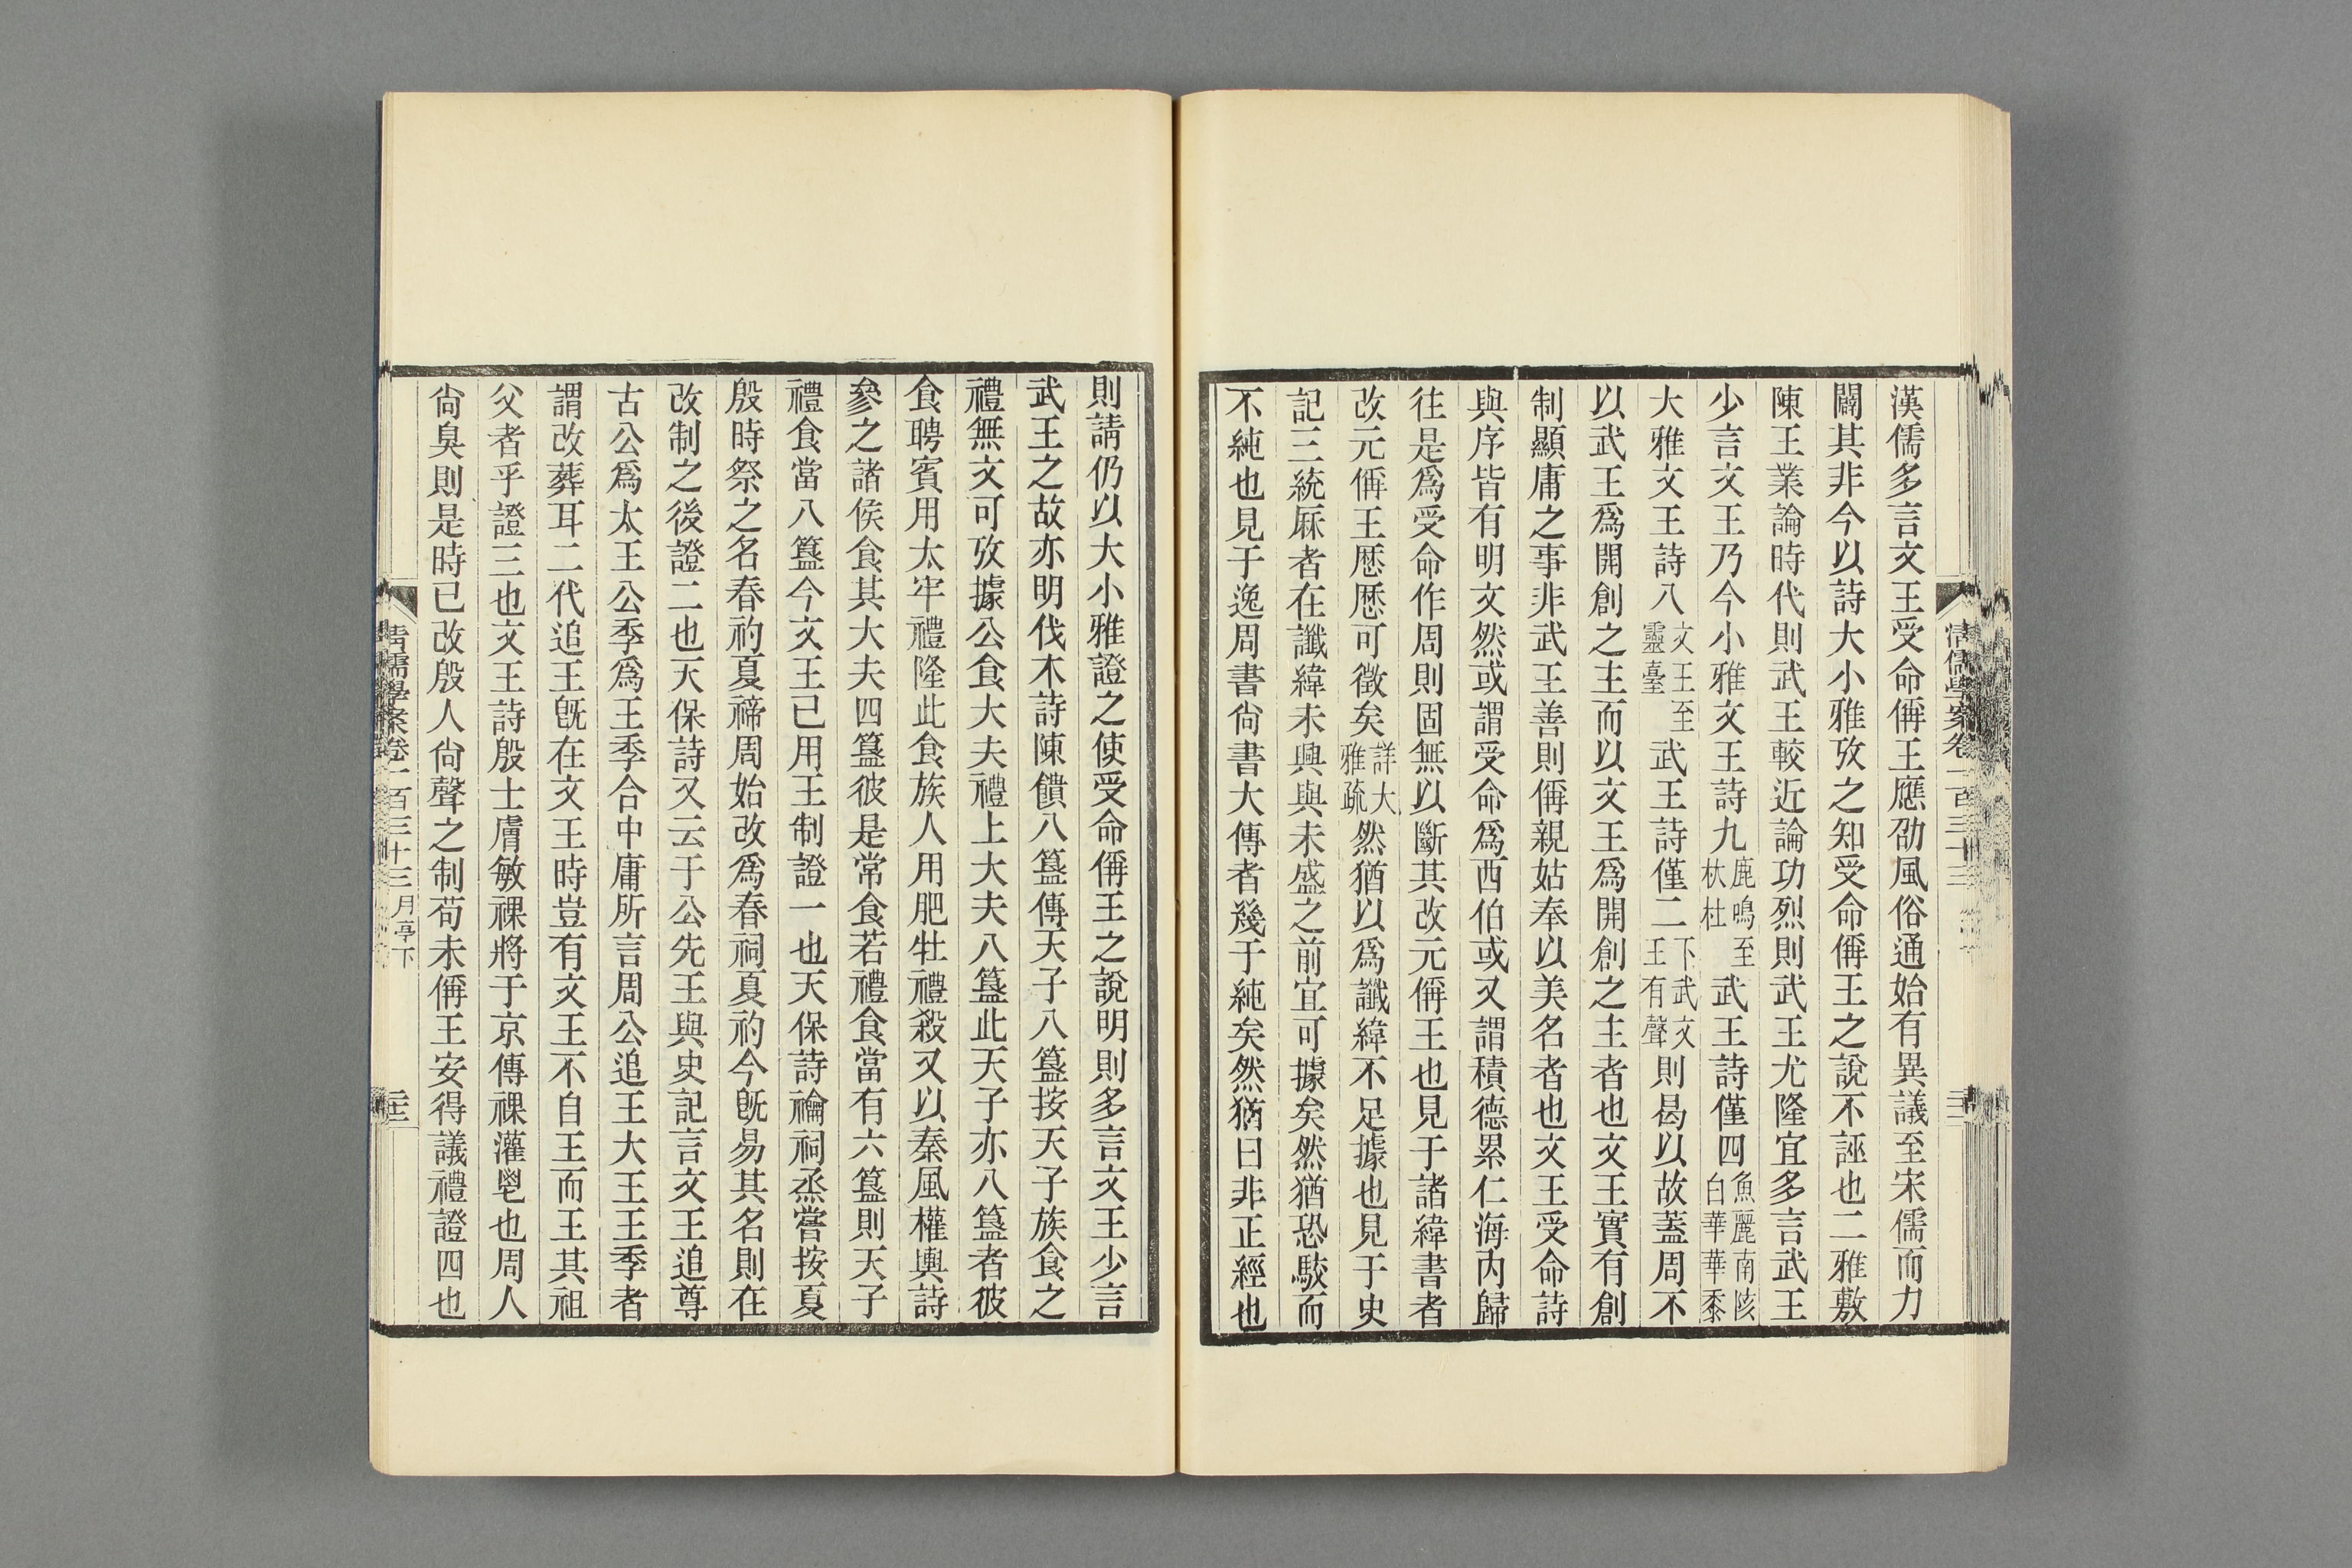 漢儒多言文王受命偁王應劭風俗通始有異議至宋儒而力
闢其非今以詩大小雅攷之知受命偁王之說不誣也二雅敷
陳王業論時代則武王較近論功烈則武王尤隆宜多言武王
少言文王乃今小雅文王詩九鹿鳴至杕杜武王詩僅四魚麗南陔白華華黍
大雅文王詩八文王至靈臺武王詩僅二下武文王有聲則曷以故蓋周不
以武王爲開創之主而以文王爲開創之主者也文王實有創
制顯庸之事非武王善則偁親姑奉以美名者也文王受命詩
與序皆有明文然或謂受命爲西伯或又謂積德累仁海內歸
往是爲受命作周則固無以斷其改元偁王也見于諸緯書者
改元偁王厯厯可徵矣詳大雅疏然猶以爲讖緯不足據也見于史
記三統厤者在讖緯未興與未盛之前宜可據矣然猶恐駁而
不純也見于逸周書尙書大傳者幾于純矣然猶曰非正經也
清儒學案卷一百三十三
則請仍以大小雅證之使受命偁王之說明則多言文王少言
武王之故亦明伐木詩陳饋八簋傳天子八簋按天子族食之
禮無文可攷據公食大夫禮上大夫八簋此天子亦八簋者彼
食聘賓用太牢禮隆此食族人用肥牡禮殺又以秦風權輿詩
參之諸侯食其大夫四簋彼是常食若禮食當有六簋則天子
禮食當八簋今文王已用王制證一也天保詩禴祠烝嘗按夏
殷時祭之名春礿夏禘周始改爲春祠夏礿今旣易其名則在
改制之後證二也天保詩又云于公先王與史記言文王追尊
古公爲太王公季爲王季合中庸所言周公追王大王王季者
謂改葬耳二代追王旣在文王時豈有文王不自王而王其祖
父者乎證三也文王詩殷士膚敏祼將于京傳祼灌鬯也周人
尙臭則是時已改殷人尙聲之制苟未偁王安得議禮證四也
清儒學案卷一百三十三月亭下